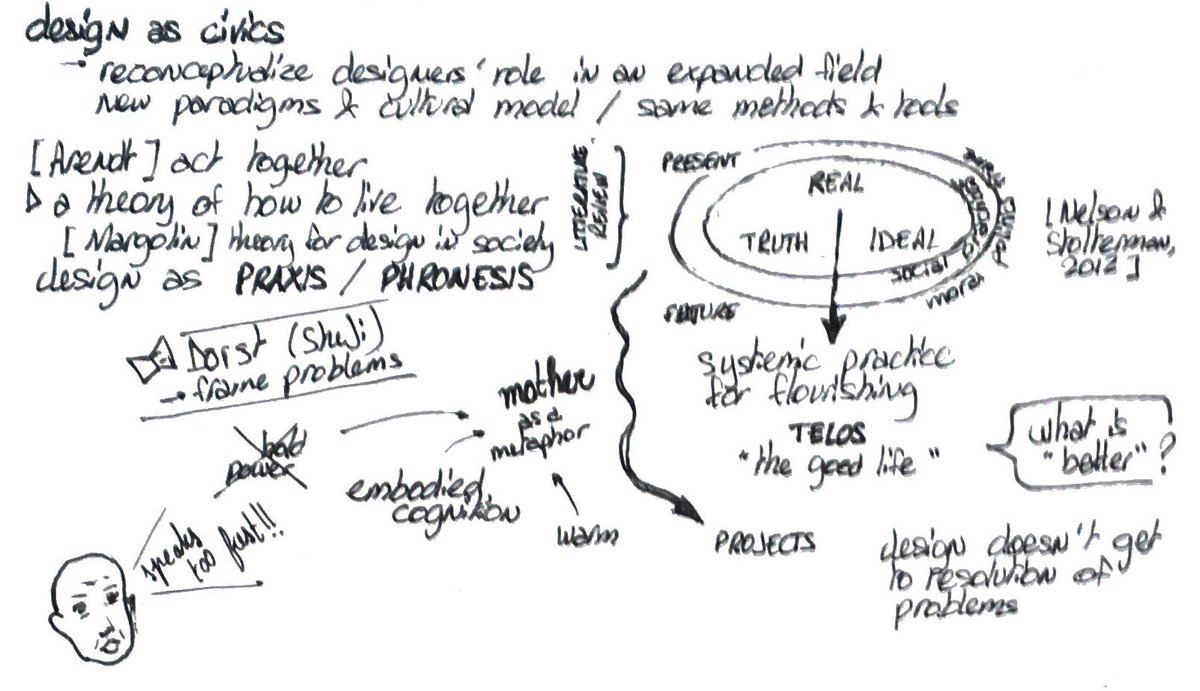 design as civics
→ reconceptualize designers' role in an expanded field
new paradigms & cultural model / same methods & tools
[Arendt] act together
▷ a theory of how to live together
[Margolin] theory for design in society
design as PRAXIS / PHRONESIS
LITTERATURE
REVIEW
PRESENT
REAL
TRUTH
IDEAL
social
moral
FEUTURE
[Nelson &
Stolterman,
2012]
systemic practice
for flourishing
TELOS
"the good life"
what is
"better"?
Dorst (Shuji)
→ frame problems
hold
power
mother
as a
metaphor
embodied
cognition
warm
speaks
too fast!!
PROJECTS
design doesn't get
to resolution of
problems